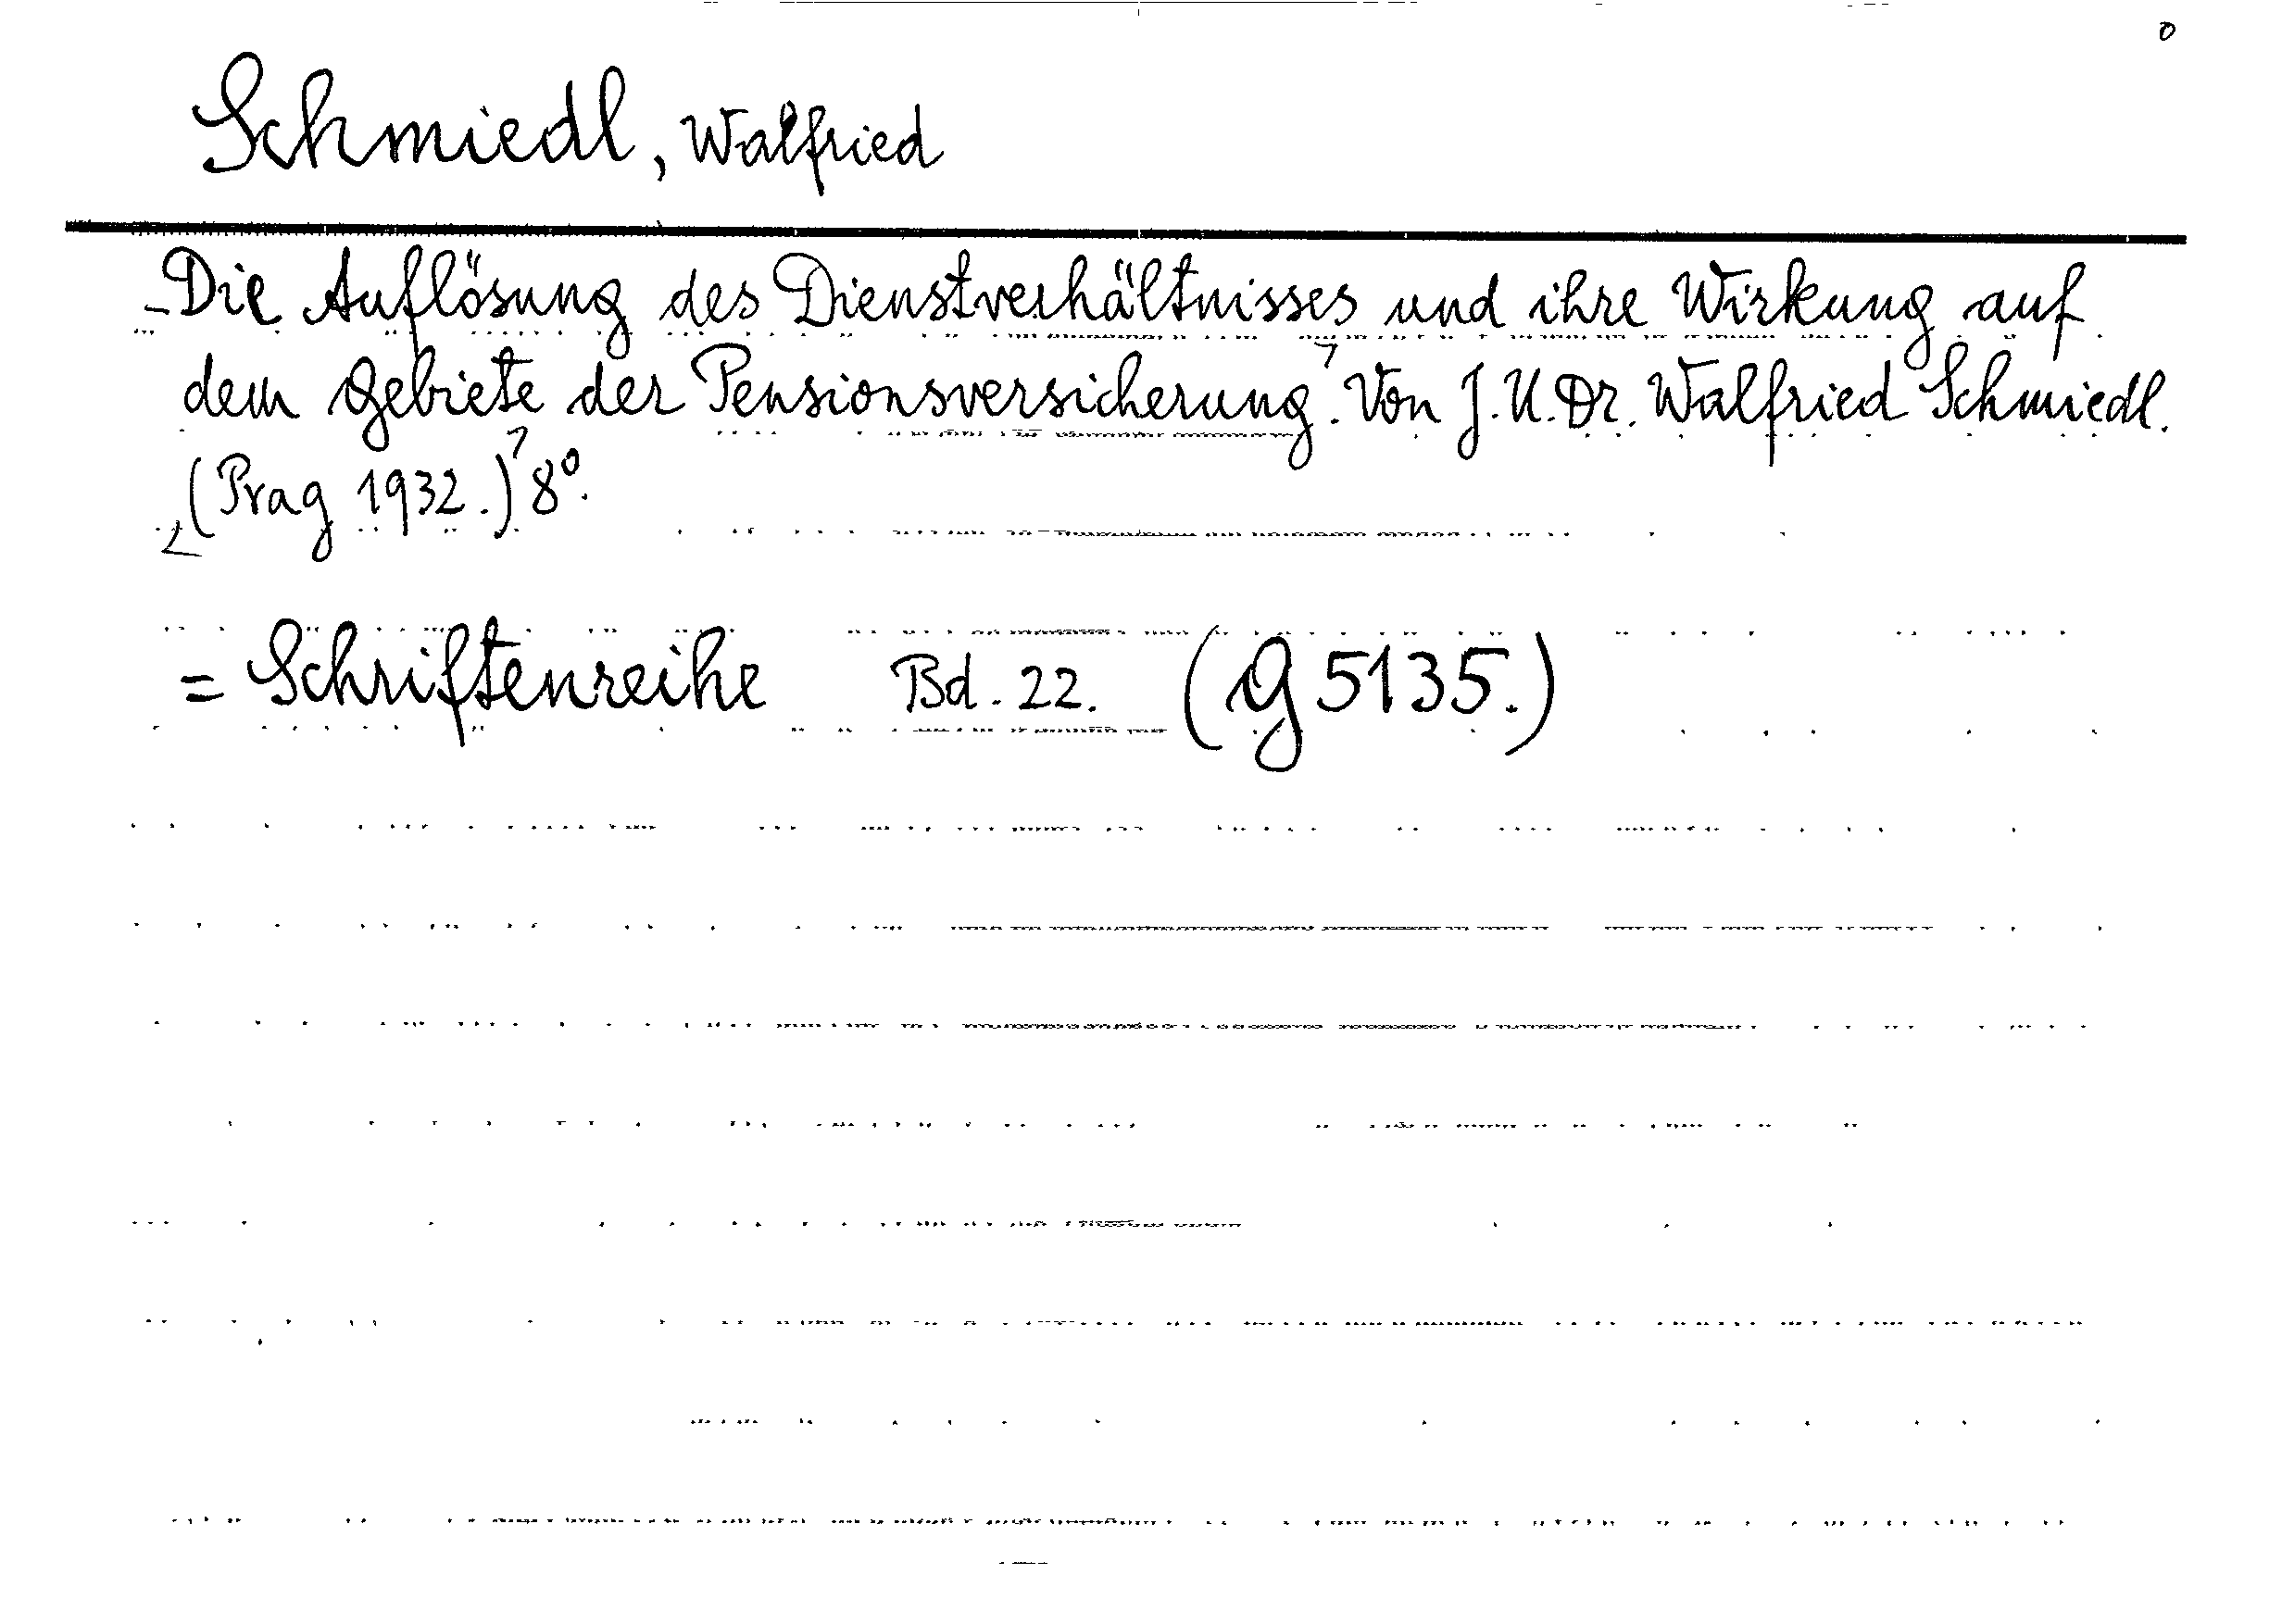 o
Schmiedl, Walfried
Die Auflösung des Dienstverhältnisses und ihre Wirkung auf
dem Gebiete der Pensionsversicherung. Von J. U. Dr. Walfried Schmiedl.
(Prag 1932.) 8°.
= Schriftenreihe Bd. 22. (G 5135.)